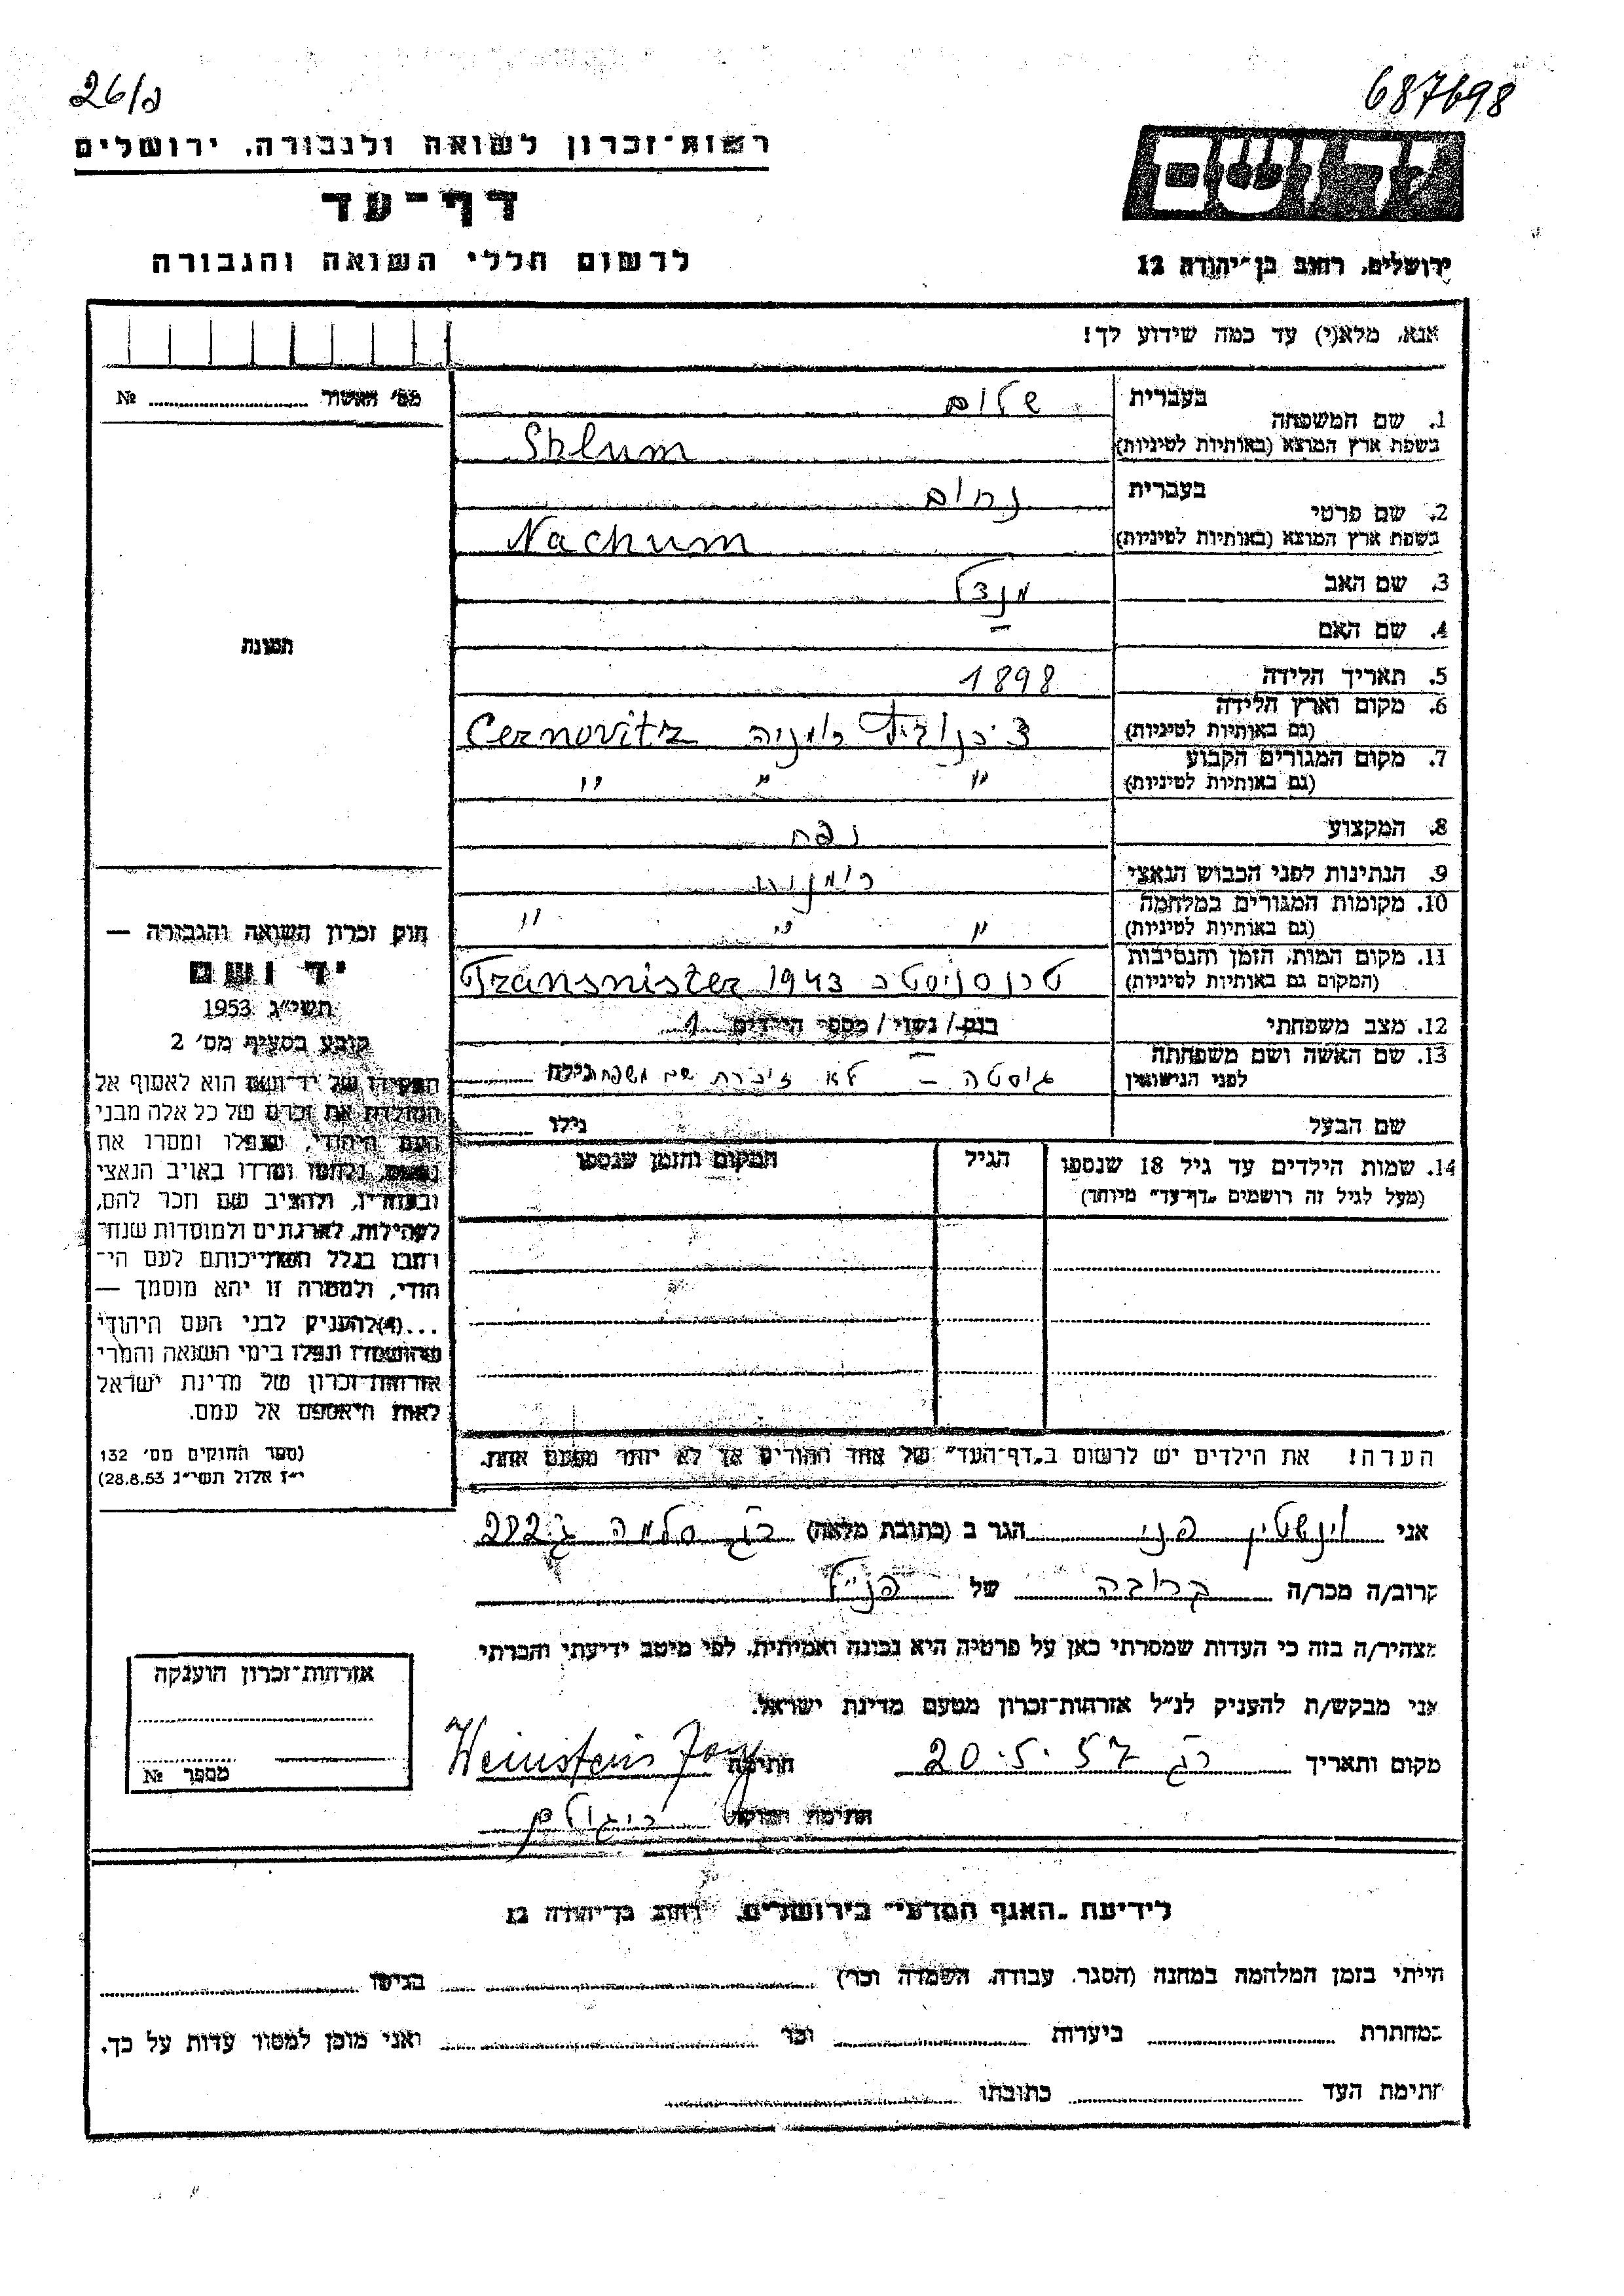 26/د
687698
רשות־זכרון לשואה ולגבורה, ירושלים
דף־עד
לרשום חללי השואה והגבורה
יד ושם
ירושלים, רחוב בן־יהודה 12
אנא, מלא(י) עד כמה שידוע לך!
מס' האשור № 
1. שם המשפחה בעברית שלום
בשפת ארץ המוצא (באותיות לטיניות) Shlum
2. שם פרטי בעברית נחום
בשפת ארץ המוצא (באותיות לטיניות) Nachum
3. שם האב מנדל
4. שם האם —
תמונה
5. תאריך הלידה 1898
6. מקום וארץ הלידה (גם באותיות לטיניות) צ'רנוביץ רומניה Cernovitz
7. מקום המגורים הקבוע (גם באותיות לטיניות) " " "
8. המקצוע נפח
9. הנתינות לפני הכבוש הנאצי רומנית
10. מקומות המגורים במלחמה (גם באותיות לטיניות) " " "
11. מקום המות, הזמן והנסיבות (המקום גם באותיות לטיניות) טרנסניסטר Transnister 1943
12. מצב משפחתי רווק / נשוי / מספר הילדים 1
13. שם האשה ושם משפחתה לפני הנישואין גוסטה – לא זוכרת שם משפחה גילה
שם הבעל גילו
14. שמות הילדים עד גיל 18 שנספו
(מעל לגיל זה רושמים "דף־עד" מיוחד)
הגיל
המקום והזמן שנספו
הערה! את הילדים יש לרשום ב"דף־העד" של אחד ההורים אך לא יותר מפעם אחת.
חוק זכרון השואה והגבורה —
יד ושם
תשי"ג 1953
קובע בסעיף מס' 2
תפקידו של יד־ושם הוא לאסוף אל
המולדת את זכרם של כל אלה מבני
העם היהודי, שנפלו ומסרו את
נפשם, נלחמו ומרדו באויב הנאצי
ובעוזריו, ולהציב שם וזכר להם,
לקהילות, לארגונים ולמוסדות שנח־
רבו בגלל השתייכותם לעם הי־
הודי, ולמטרה זו יהא מוסמך —
...(4) להעניק לבני העם היהודי
שהושמדו ונפלו בימי השואה והמרי
אזרחות־זכרון של מדינת ישראל
לאות היאספם אל עמם.
(ספר החוקים מס' 132
י"ז אלול תשי"ג 28.8.53)
אני וינשטין פני הגר ב (כתובת מלאה) רג סלמה ג' 282
קרוב/ה מכר/ה קרובה של הנ"ל
מצהיר/ה בזה כי העדות שמסרתי כאן על פרטיה היא נכונה ואמיתית, לפי מיטב ידיעתי והכרתי
אני מבקש/ת להעניק לנ"ל אזרחות־זכרון מטעם מדינת ישראל.
מקום ותאריך רג 20.5.57 חתימה Weinstein Fany
חתימת הפוקד
אזרחות־זכרון הוענקה
מספר №
לידיעת "האגף המדעי" בירושלים, רחוב בן־יהודה 12
הייתי בזמן המלחמה במחנה (הסגר, עבודה, השמדה וכו') בגיטו
במחתרת ביערות וכו' ואני מוכן למסור עדות על כך.
חתימת העד כתובתו